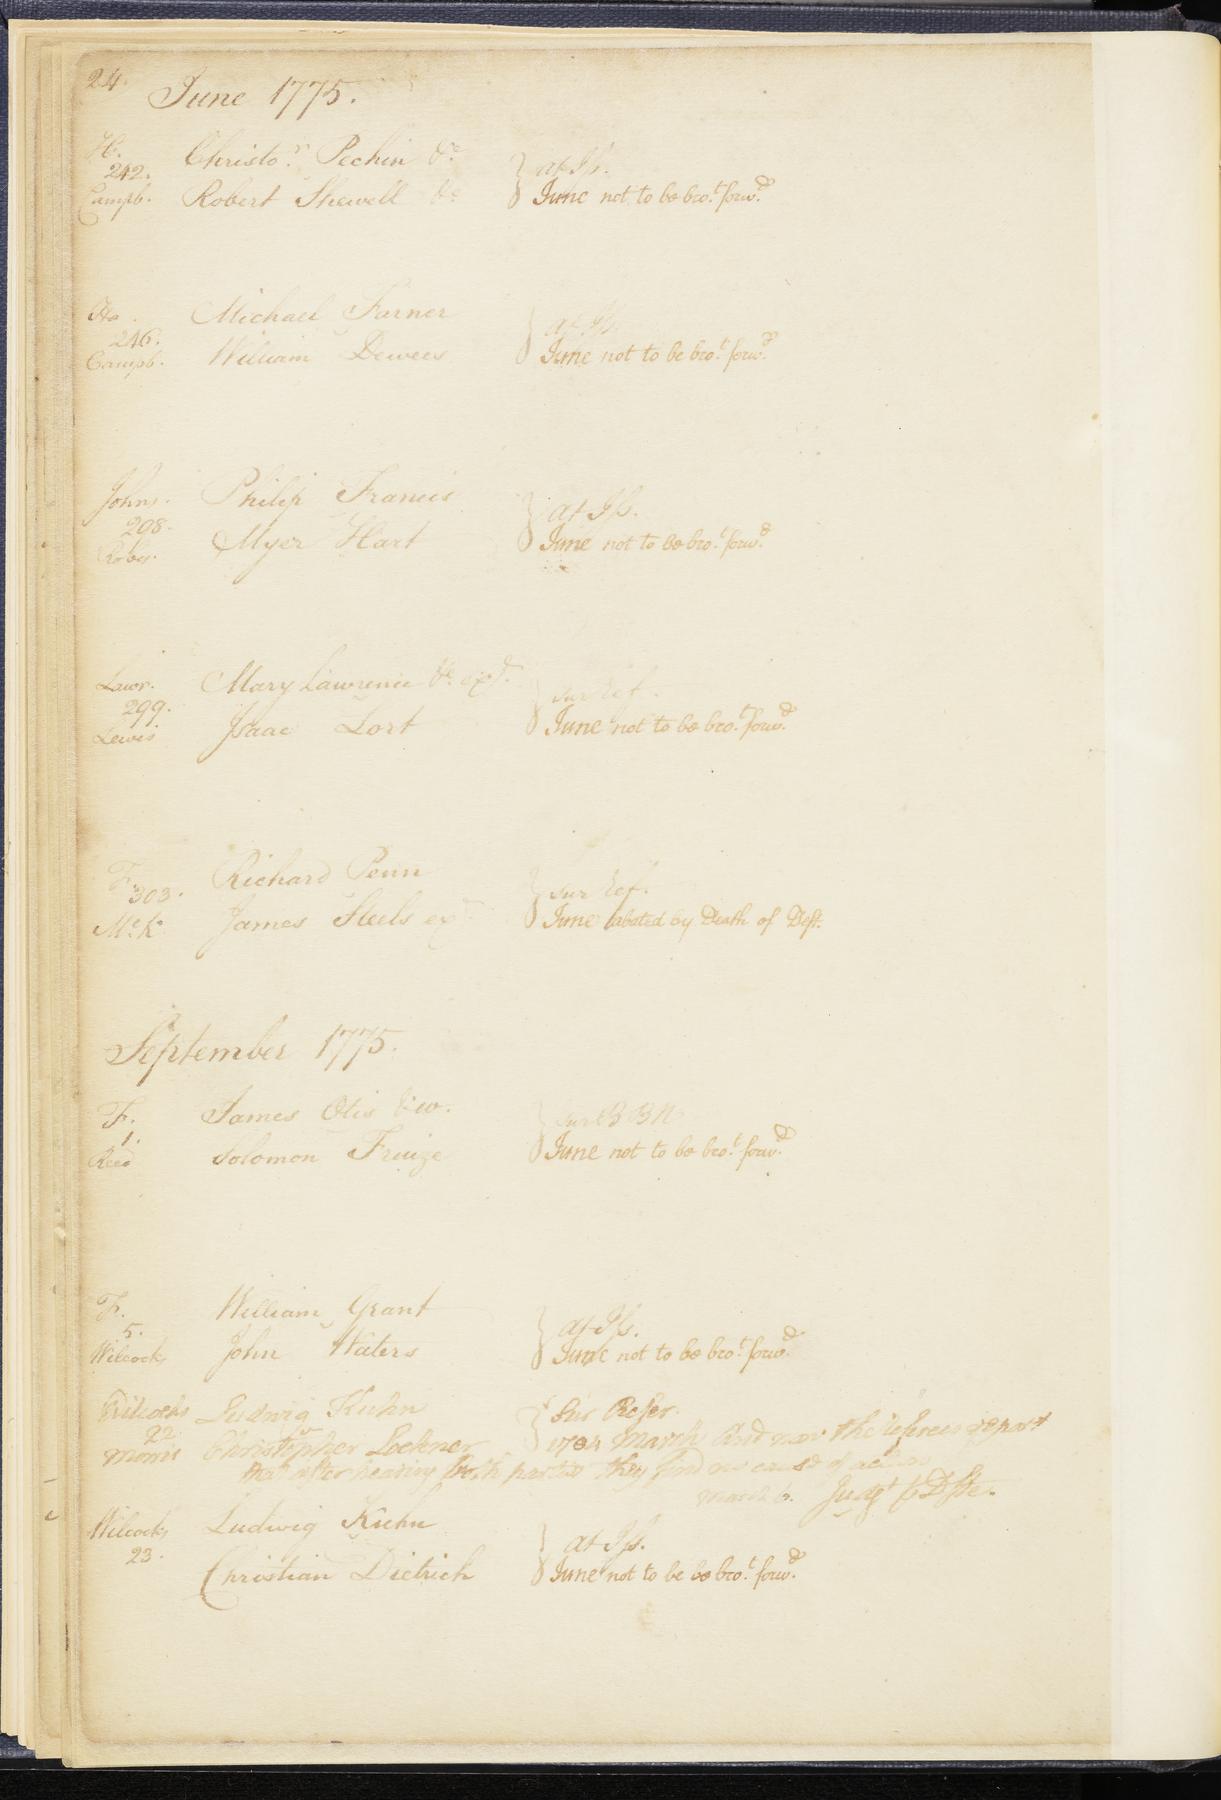 24.
June 1775.
H. Christo.r Pechin &c
242. } at Iss.
Campb. Robert Shewell &c June not to be bro.t forw.d
Ha. Michael Farner
246. } at Iss.
Campb. William Dewees June not to be bro.t forw.d
Johns. Philip Francis
298. } at Iss.
Myer Hart June not to be bro.t forw.d
Lawr. Mary Lawrence &c exd.
299. } sur Ref.
Lewis Isaac Lort June not to be bro.t forw.d
F. Richard Penn
303. } sur Ref.
McK. James Steels ex June abated by Death of Deft.
September 1775.
F. James Otis & co.
1. } sur
Reed Solomon June not to be bro.t forw.d
F. William Grant
5. } at Iss.
Wilcocks John Waters June not to be bro.t forw.d
Wilcocks Ludwig Kuhn } Sur Refer.
22 1784 March And now the referees report
Morris Christopher Lockner
that after hearing both parties they find no cause of action
March 6. Judgt
Wilcocks Ludwig Kuhn
23. } at Iss.
Christian Dietrich June not to be be bro.t forw.d